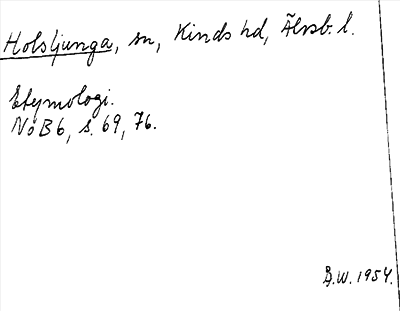 Holsljunga, sn, Kinds hd, Älvsb. l.
Etymologi.
NoB 6, s. 69, 76.
B.W. 1954.